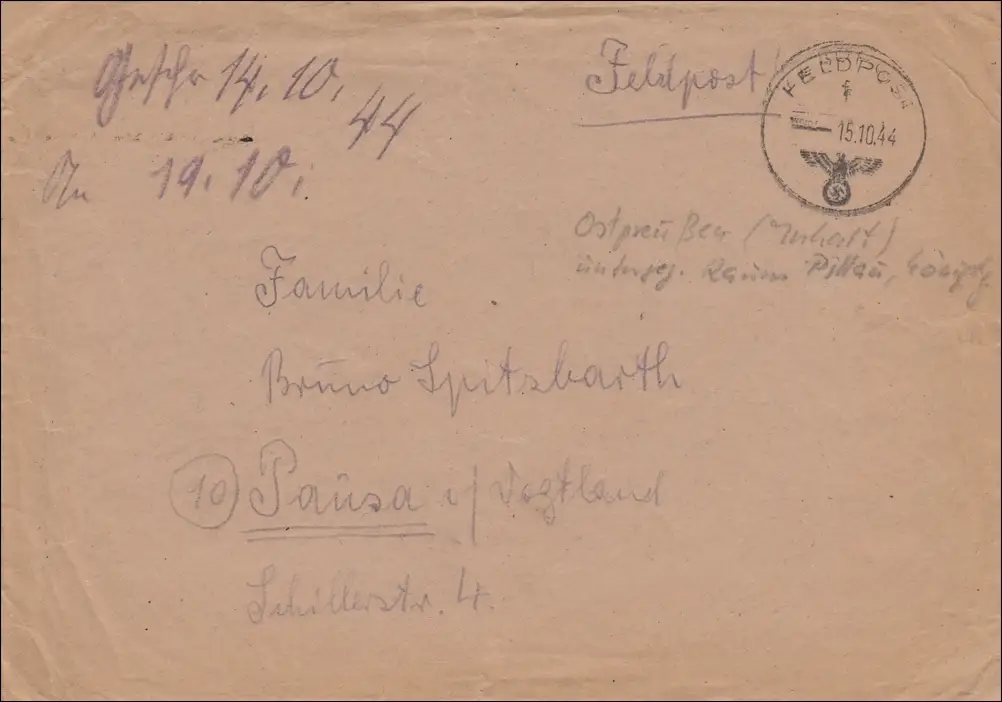 Geschr 14. 10. 44
An 19. 10.
Feldpost
FELDPOST
f
15.10.44
Ostpreußen (Inhalt)
unterzg. Raum Pillau, Königsbg.
Familie
Bruno Spitzbarth
(10) Pausa i/ Vogtland
Schillerstr. 4.